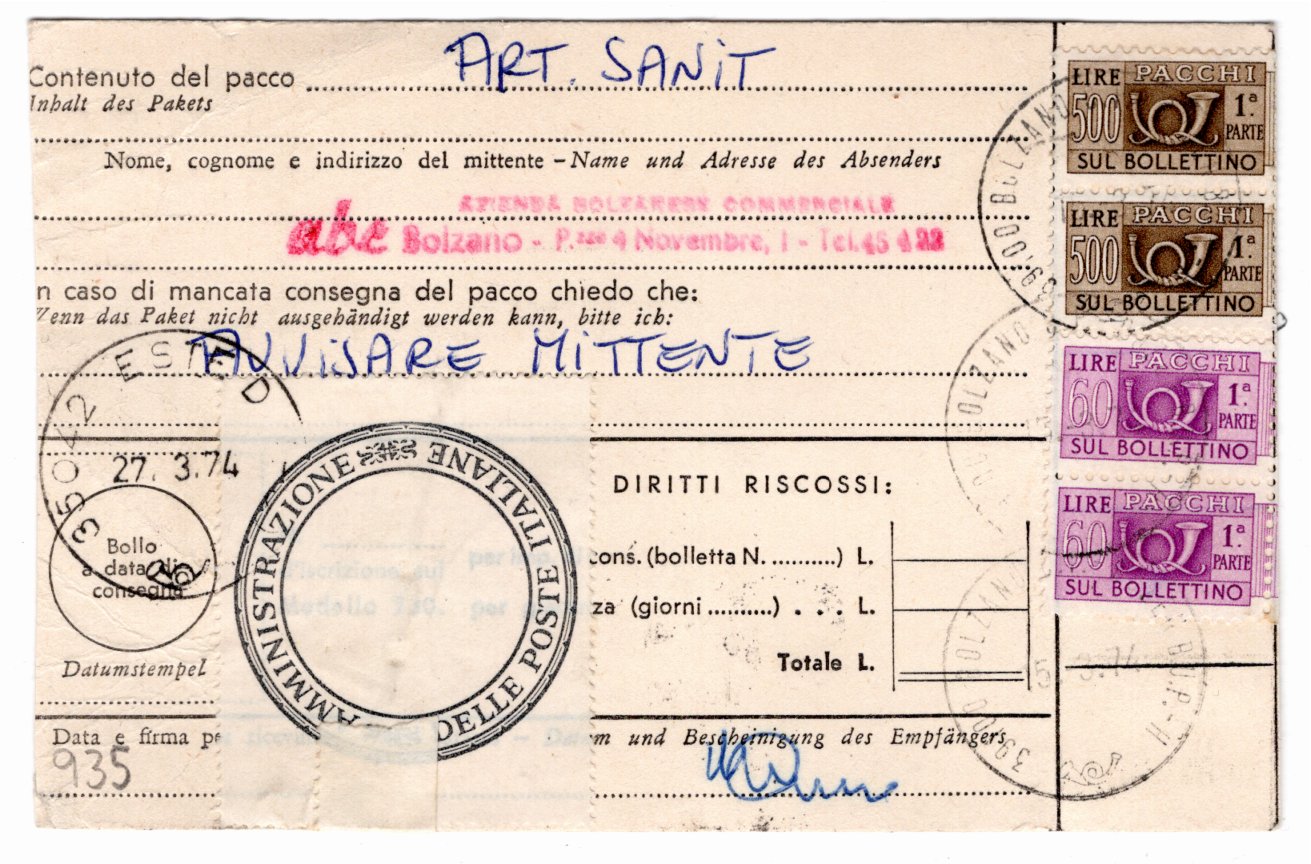 ART. SANIT
Contenuto del pacco
Inhalt des Pakets
Nome, cognome e indirizzo del mittente - Name und Adresse des Absenders
AZIENDA COMMERCIALE
abc Bolzano - P.zza 4 Novembre, 1 - Tel. 45 4
n caso di mancata consegna del pacco chiedo che:
Wenn das Paket nicht ausgehändigt werden kann, bitte ich:
AVVISARE MITTENTE
35042 ESTE D
27. 3.74
Bollo
a data di
consegna
Datumstempel
AMMINISTRAZIONE DELLE POSTE ITALIANE
d'iscrizione sul
Modello 230.
per
per
DIRITTI RISCOSSI:
cons. (bolletta N. ..........) L.
za (giorni ..........) . . . L.
Totale L.
Data e firma pe
m und Bescheinigung des Empfängers
935
LIRE PACCHI
500 1ª PARTE
SUL BOLLETTINO
LIRE PACCHI
500 1ª PARTE
SUL BOLLETTINO
LIRE PACCHI
60 1ª PARTE
SUL BOLLETTINO
LIRE PACCHI
60 1ª PARTE
SUL BOLLETTINO
39100 BOLZANO
OLZANO
39100 BOLZANO
5. 3.74